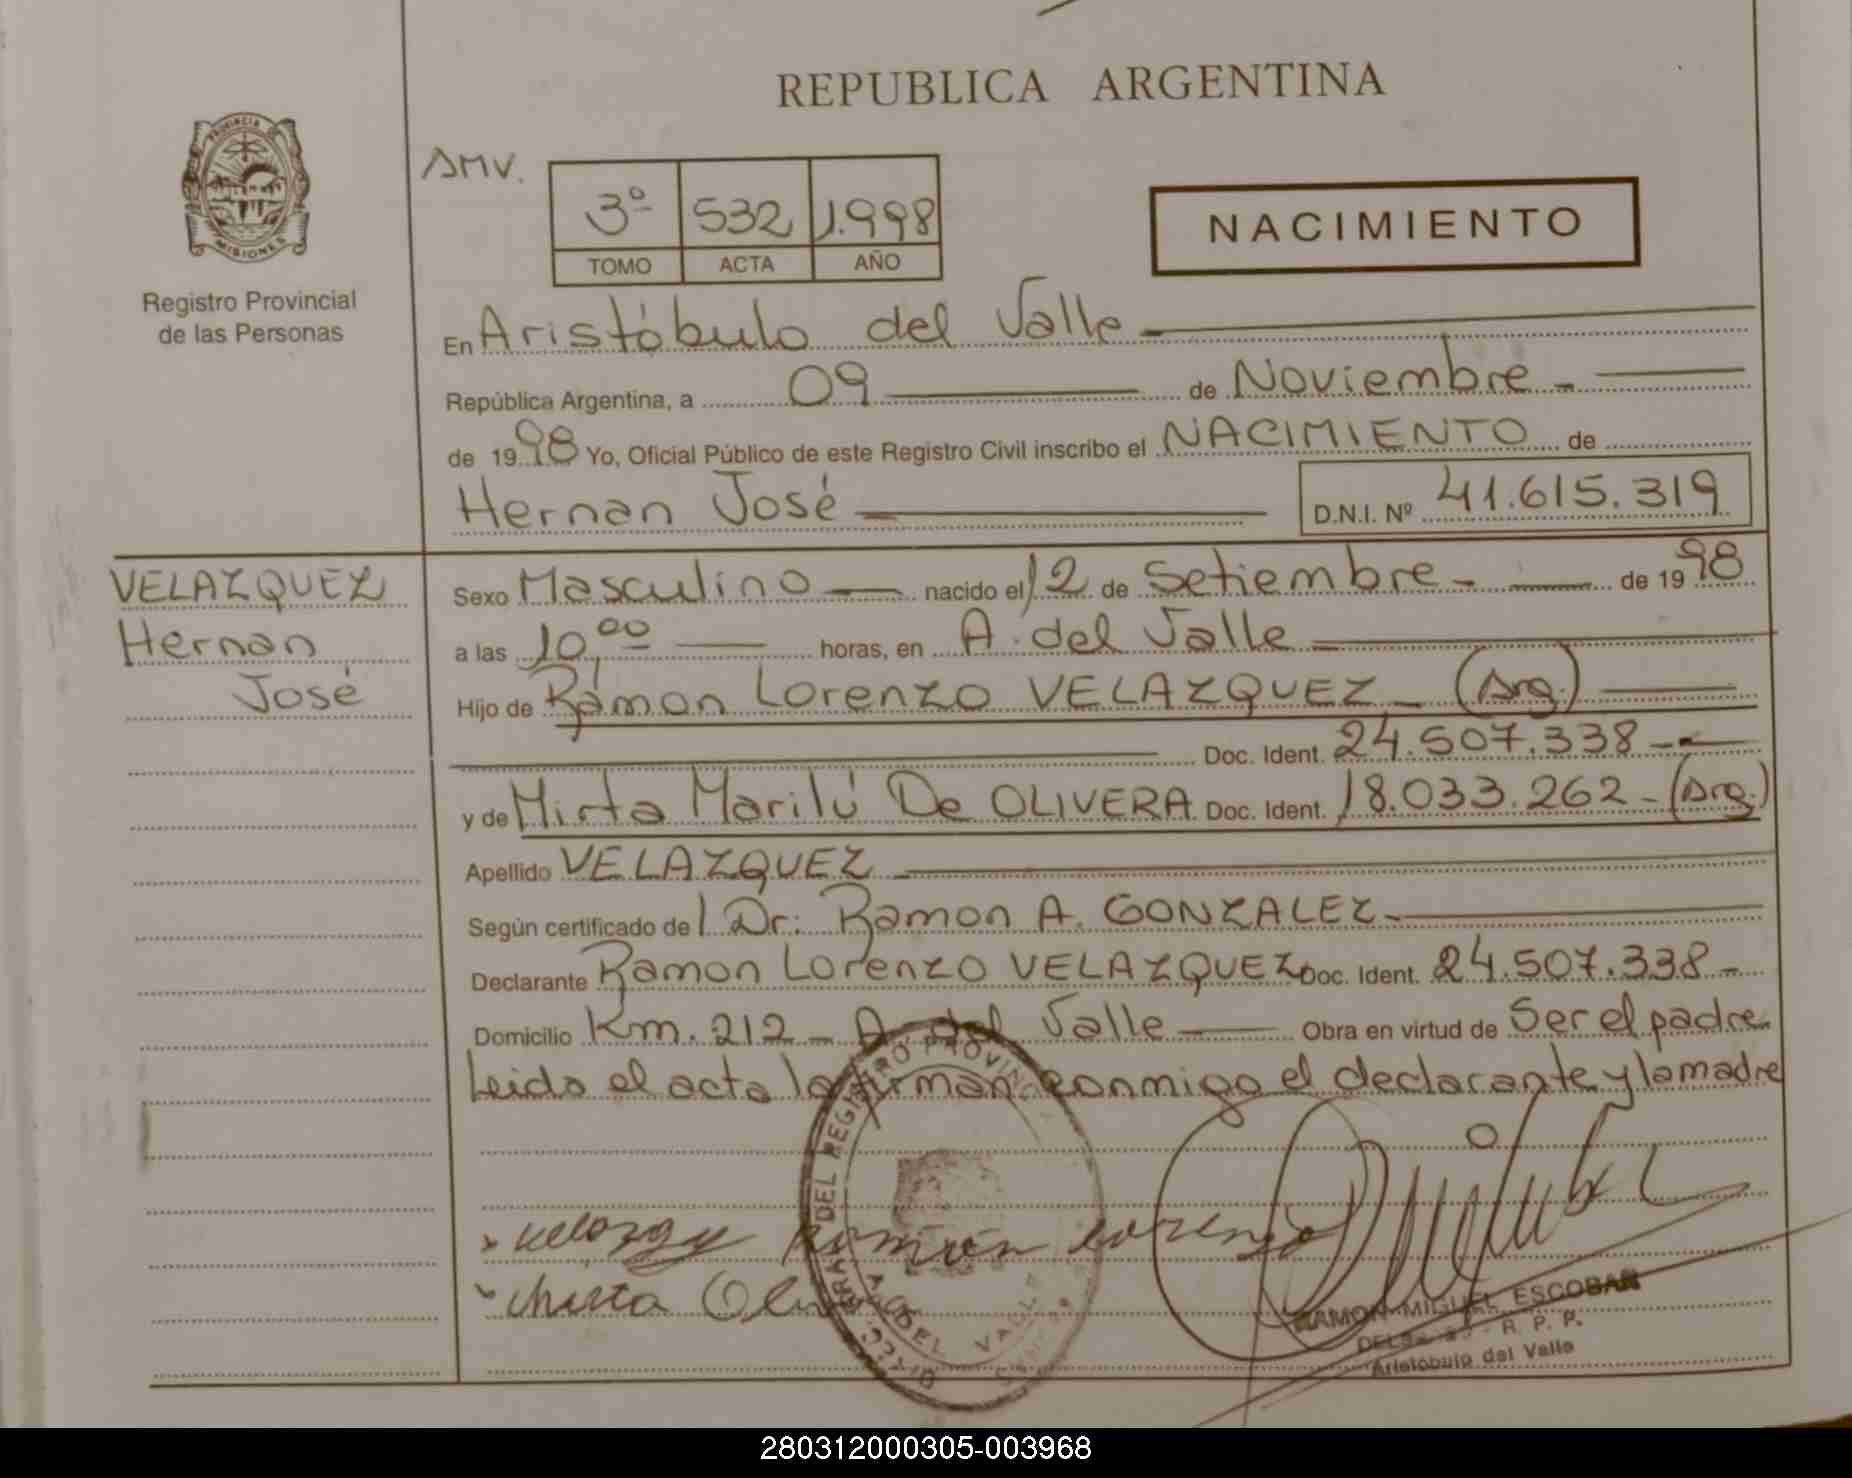 REPUBLICA ARGENTINA
PROVINCIA DE
MISIONES
Registro Provincial
de las Personas
SMV.
3º 532 1.998
TOMO ACTA AÑO
NACIMIENTO
En Aristóbulo del Valle
República Argentina, a 09 de Noviembre
de 1998 Yo, Oficial Público de este Registro Civil inscribo el NACIMIENTO de
Hernan José D.N.I. Nº 41.615.319
VELAZQUEZ
Hernan
José
Sexo Masculino nacido el 12 de Setiembre de 1998
a las 10,00 horas, en A. del Valle
Hijo de Ramon Lorenzo VELAZQUEZ (Arg.)
Doc. Ident. 24.507.338
y de Mirta Marilú De OLIVERA Doc. Ident. 18.033.262 (Arg.)
Apellido VELAZQUEZ
Según certificado de l Dr. Ramon A. GONZALEZ
Declarante Ramon Lorenzo VELAZQUEZ Doc. Ident. 24.507.338
Domicilio Km. 212 - A. del Valle Obra en virtud de Ser el padre
Leido el acta la firman conmigo el declarante y la madre
DEL REGISTRO PROVINCIAL
A. DEL VALLE
Ramón Lorenzo
RAMON MIGUEL ESCOBAR
R. P. P.
Aristóbulo del Valle
280312000305-003968